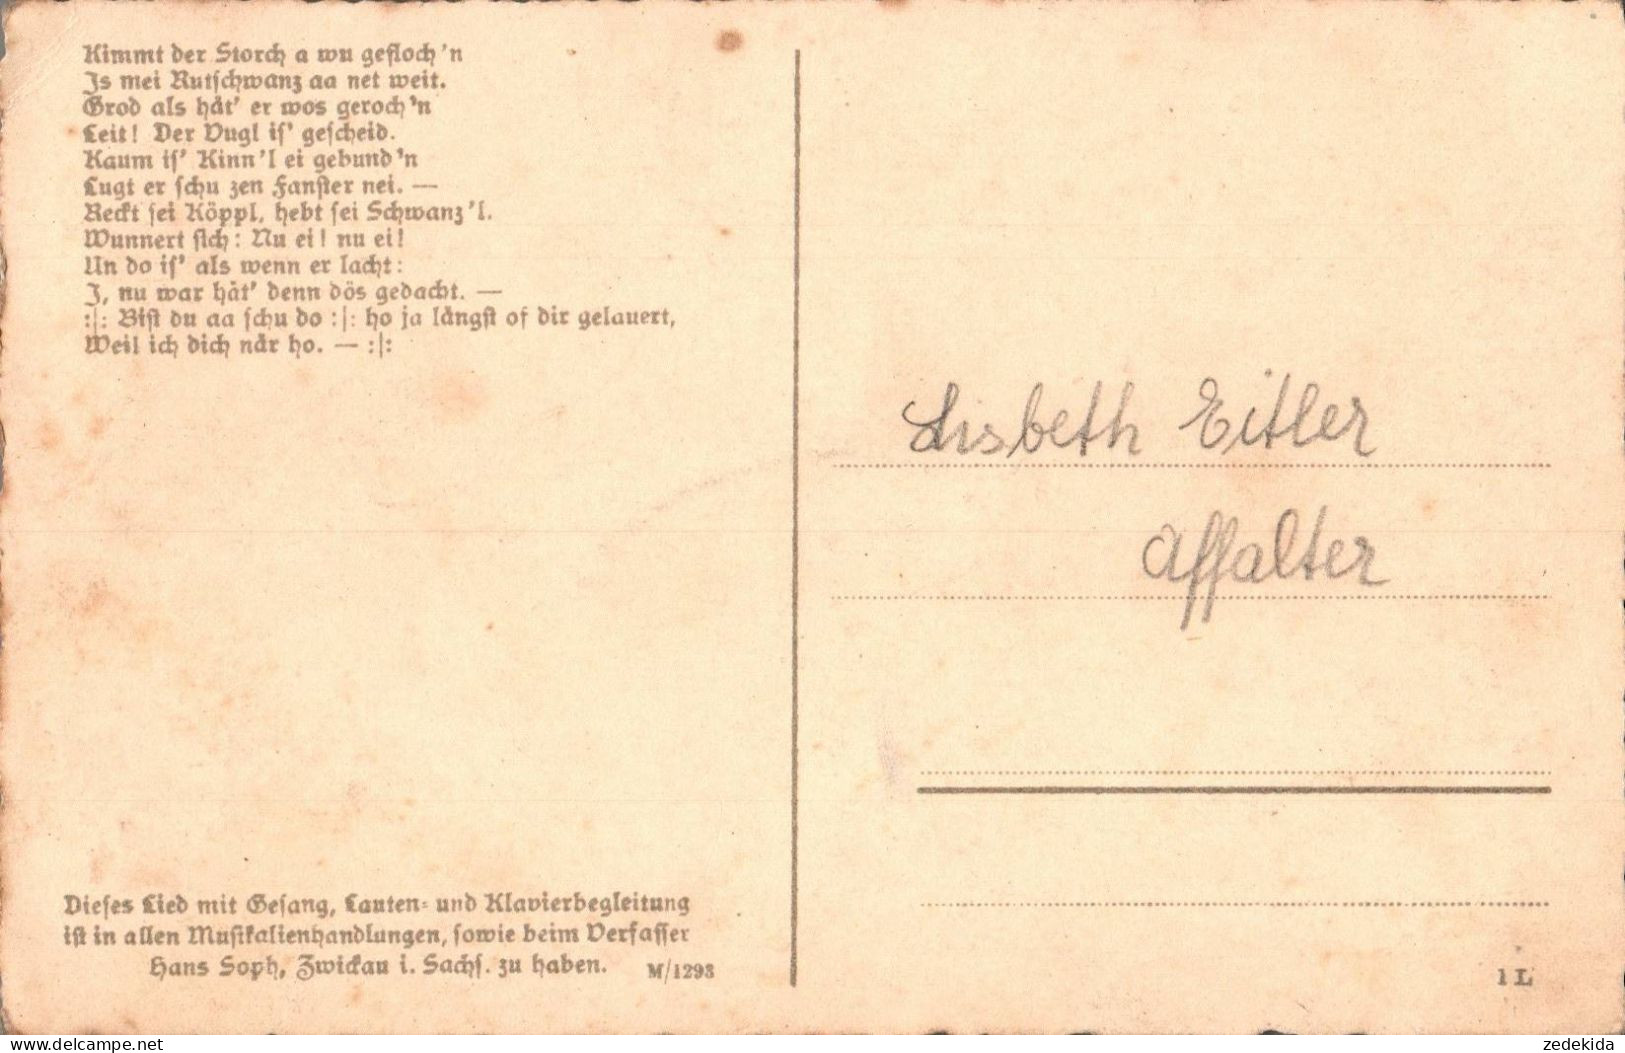 Kimmt der Storch a wu gefloch'n
Is mei Rutschwanz aa net weit.
Grod als hät' er wos geroch'n
Leit! Der Vugl is' gescheid.
Kaum is' Kinn'l ei gebund'n
Lugt er schu zen Fanster nei. —
Reckt sei Köppl, hebt sei Schwanz'l.
Wunnert sich: Nu ei! nu ei!
Un do is' als wenn er lacht:
J, nu war hät' denn dös gedacht. —
:|: Bist du aa schu do :|: ho ja längst of dir gelauert,
Weil ich dich när ho. — :|:
Lisbeth Eitler
Affalter
Dieses Lied mit Gesang, Lauten- und Klavierbegleitung
ist in allen Musikalienhandlungen, sowie beim Verfasser
Hans Soph, Zwickau i. Sachs. zu haben. M/1293
1 L
www.delcampe.net
zedekida